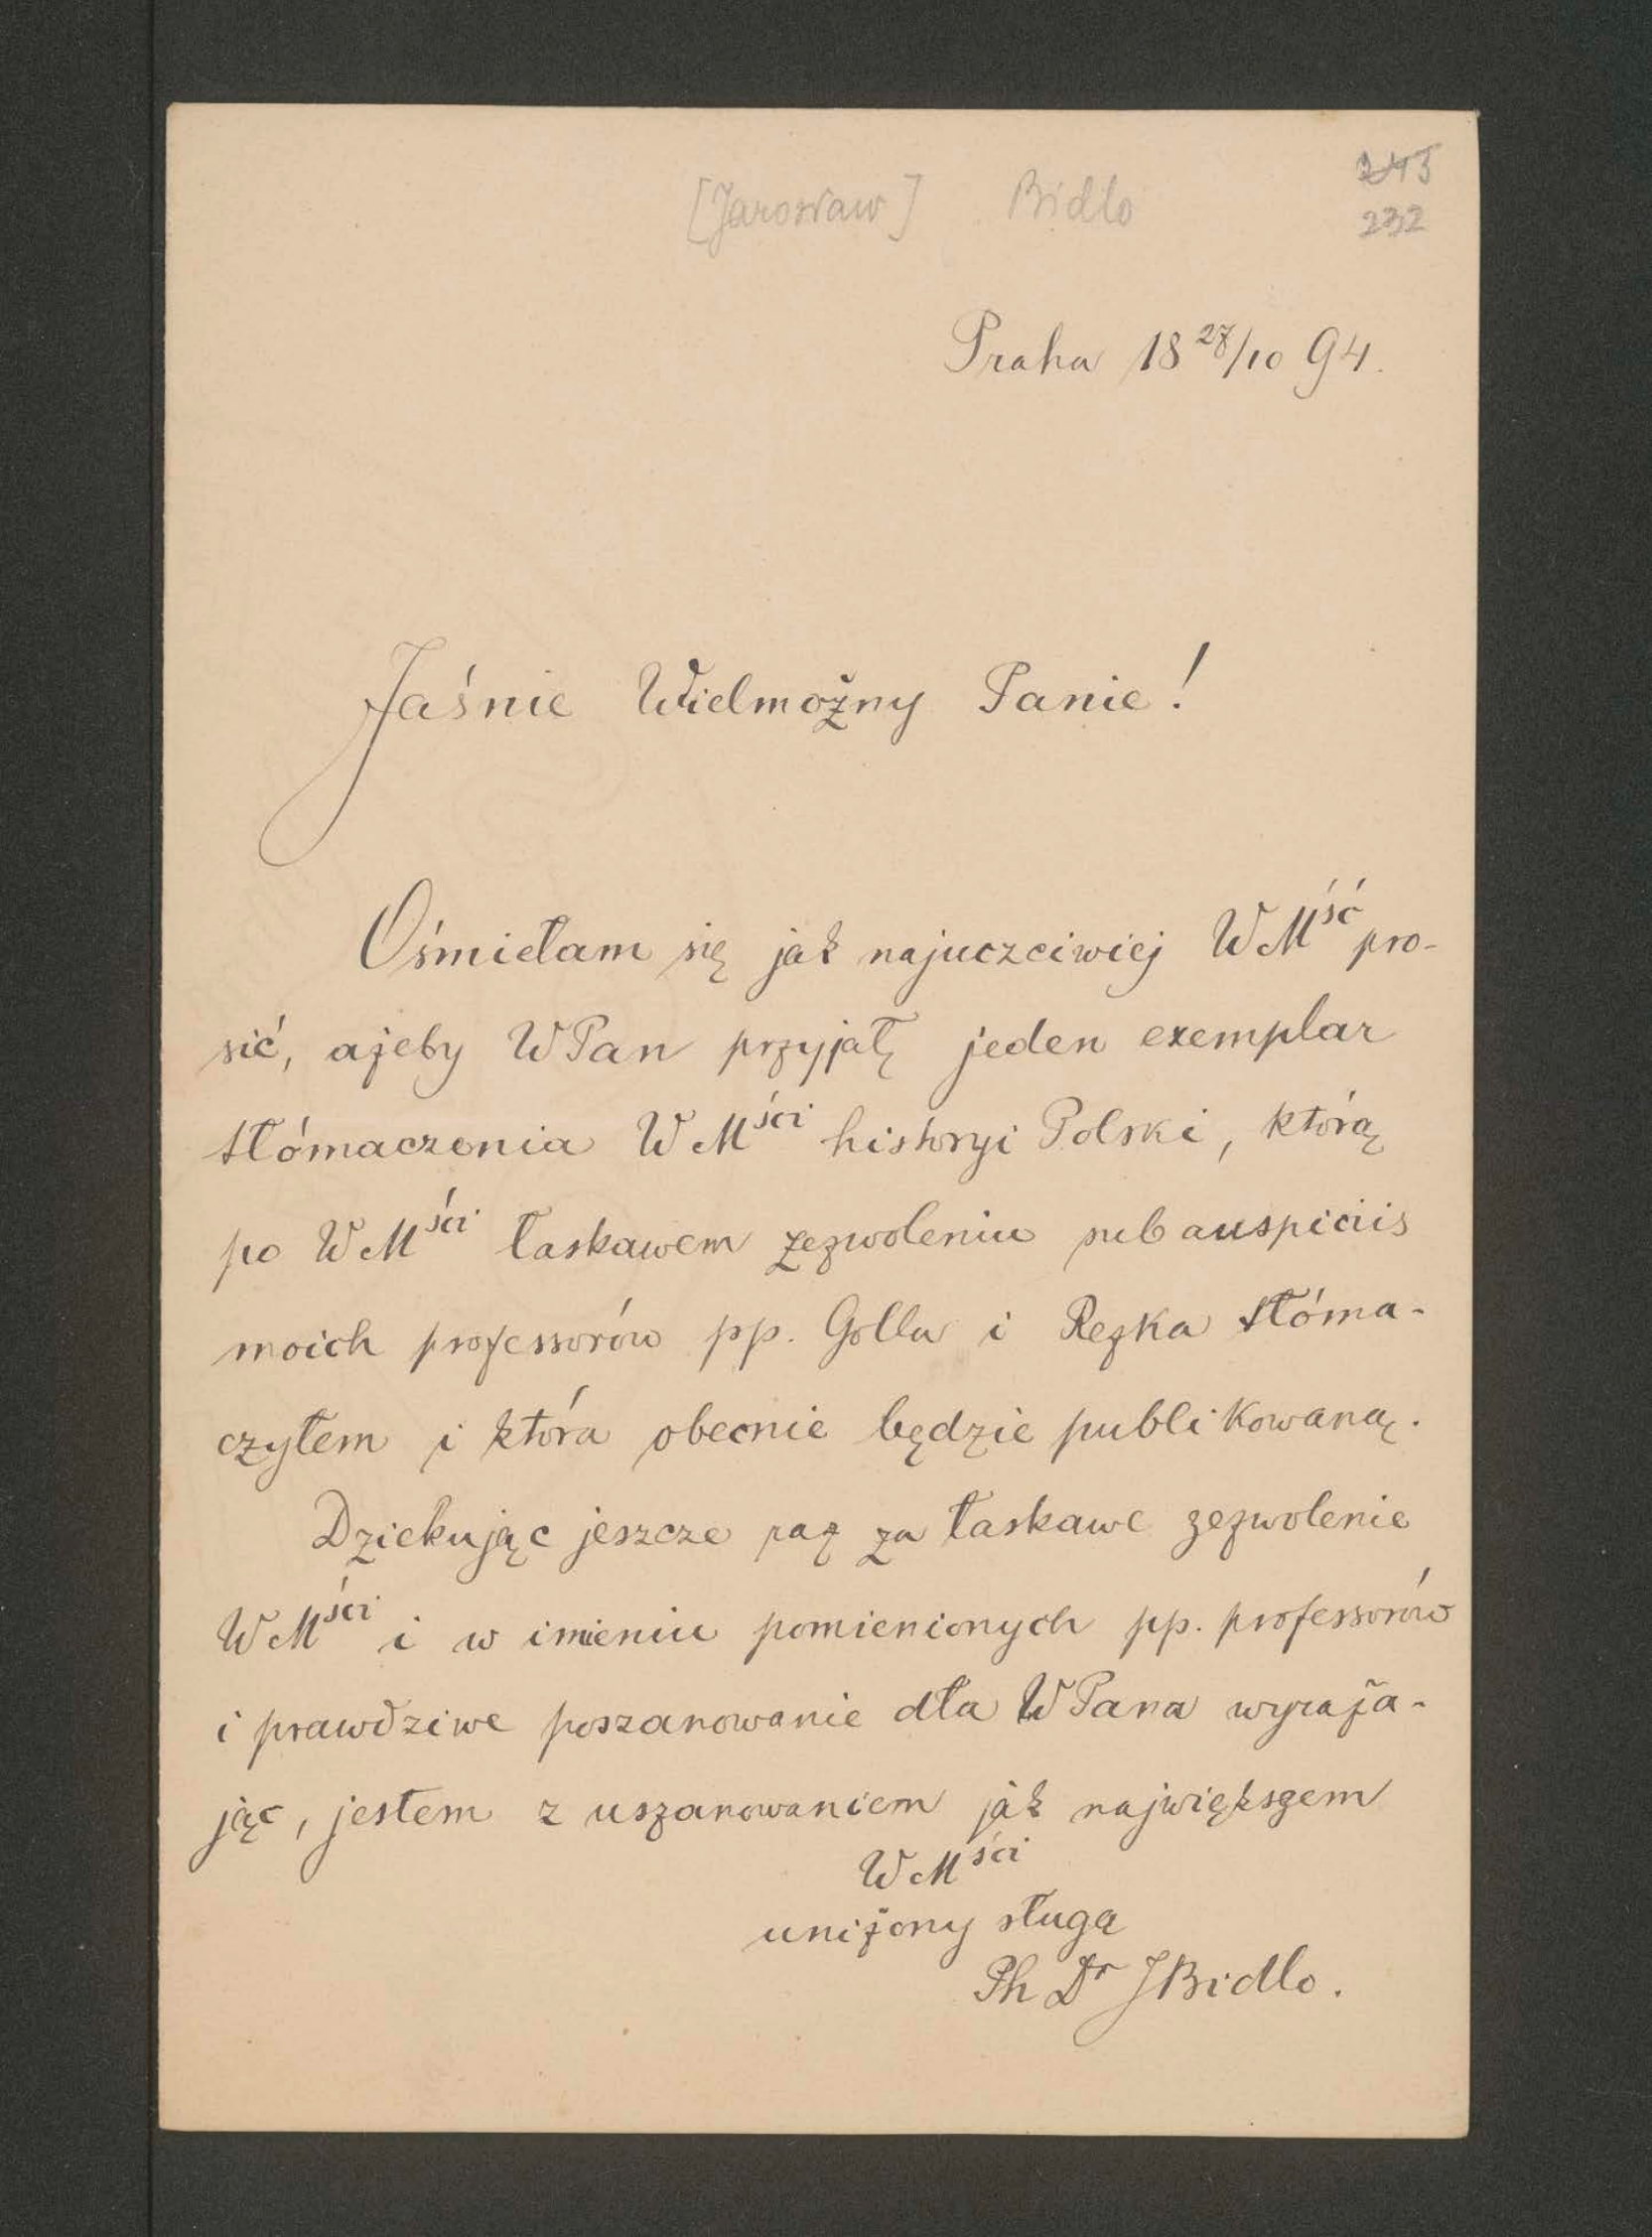 [Jarosław] Bidlo
245
232
Praha 18 28/10 94.
Jaśnie Wielmożny Panie!
Ośmiełam się jak najuczciwiej WMść pro-
sić, ażeby WPan przyjałę jeden exemplar
tłómaczenia WMści historyi Polski, którą
po WMści łaskawem zezwoleniu sub auspiciis
moich professorów pp. Golla i Rezka tłóma-
czyłem i która obecnie będzie publikowaną.
Dziekując jeszcze raz za łaskawe zezwolenie
WMści i w imieniu pomienionych pp. professorów
i prawdziwe poszanowanie dła WPana wyraża-
jąc, jestem z uszanowaniem jak największem
WMści
uniżony sługa
Ph Dr JBidlo.